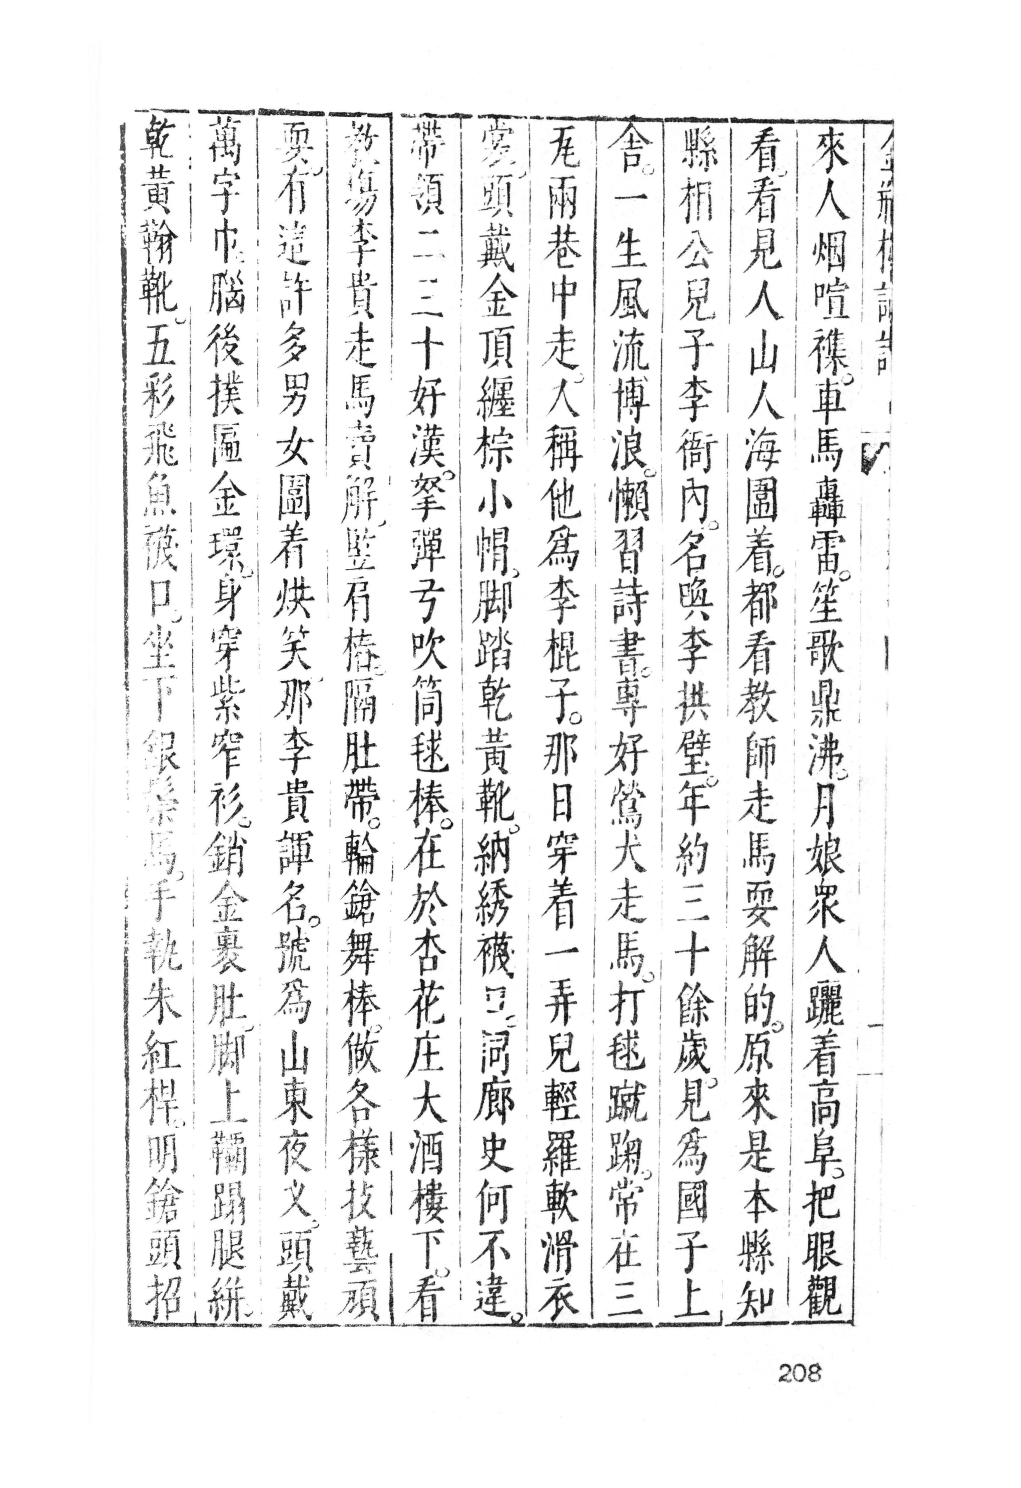 金瓶梅詞話
來人烟喧襍。車馬轟雷。笙歌鼎沸。月娘衆人躧着高阜。把眼觀
看。看見人山人海圍着。都看教師走馬耍解的。原來是本縣知
縣相公兒子李衙內。名喚李拱璧。年約三十餘歲。見爲國子上
舍。一生風流博浪。懶習詩書。專好鶯犬走馬。打毬蹴踘。常在三
瓦兩巷中走。人稱他爲李棍子。那日穿着一弄兒輕羅軟滑衣
裳。頭戴金頂纏棕小帽。脚踏乾黃靴。納綉襪口。同廊史何不違。
帶領二三十好漢。拏彈弓吹筒毬棒。在於杏花庄大酒樓下。看
教塲李貴走馬賣解。竪肩樁。隔肚帶。輪鎗舞棒。做各樣技藝頑
耍。有這許多男女圍着烘笑。那李貴諢名。號爲山東夜叉。頭戴
萬字巾。腦後撲匾金環。身穿紫窄衫。銷金裹肚。脚上䩞踢腿絣。
乾黃䩞靴。五彩飛魚襪口。坐下銀鬃馬。手執朱紅桿。明鎗頭招
208